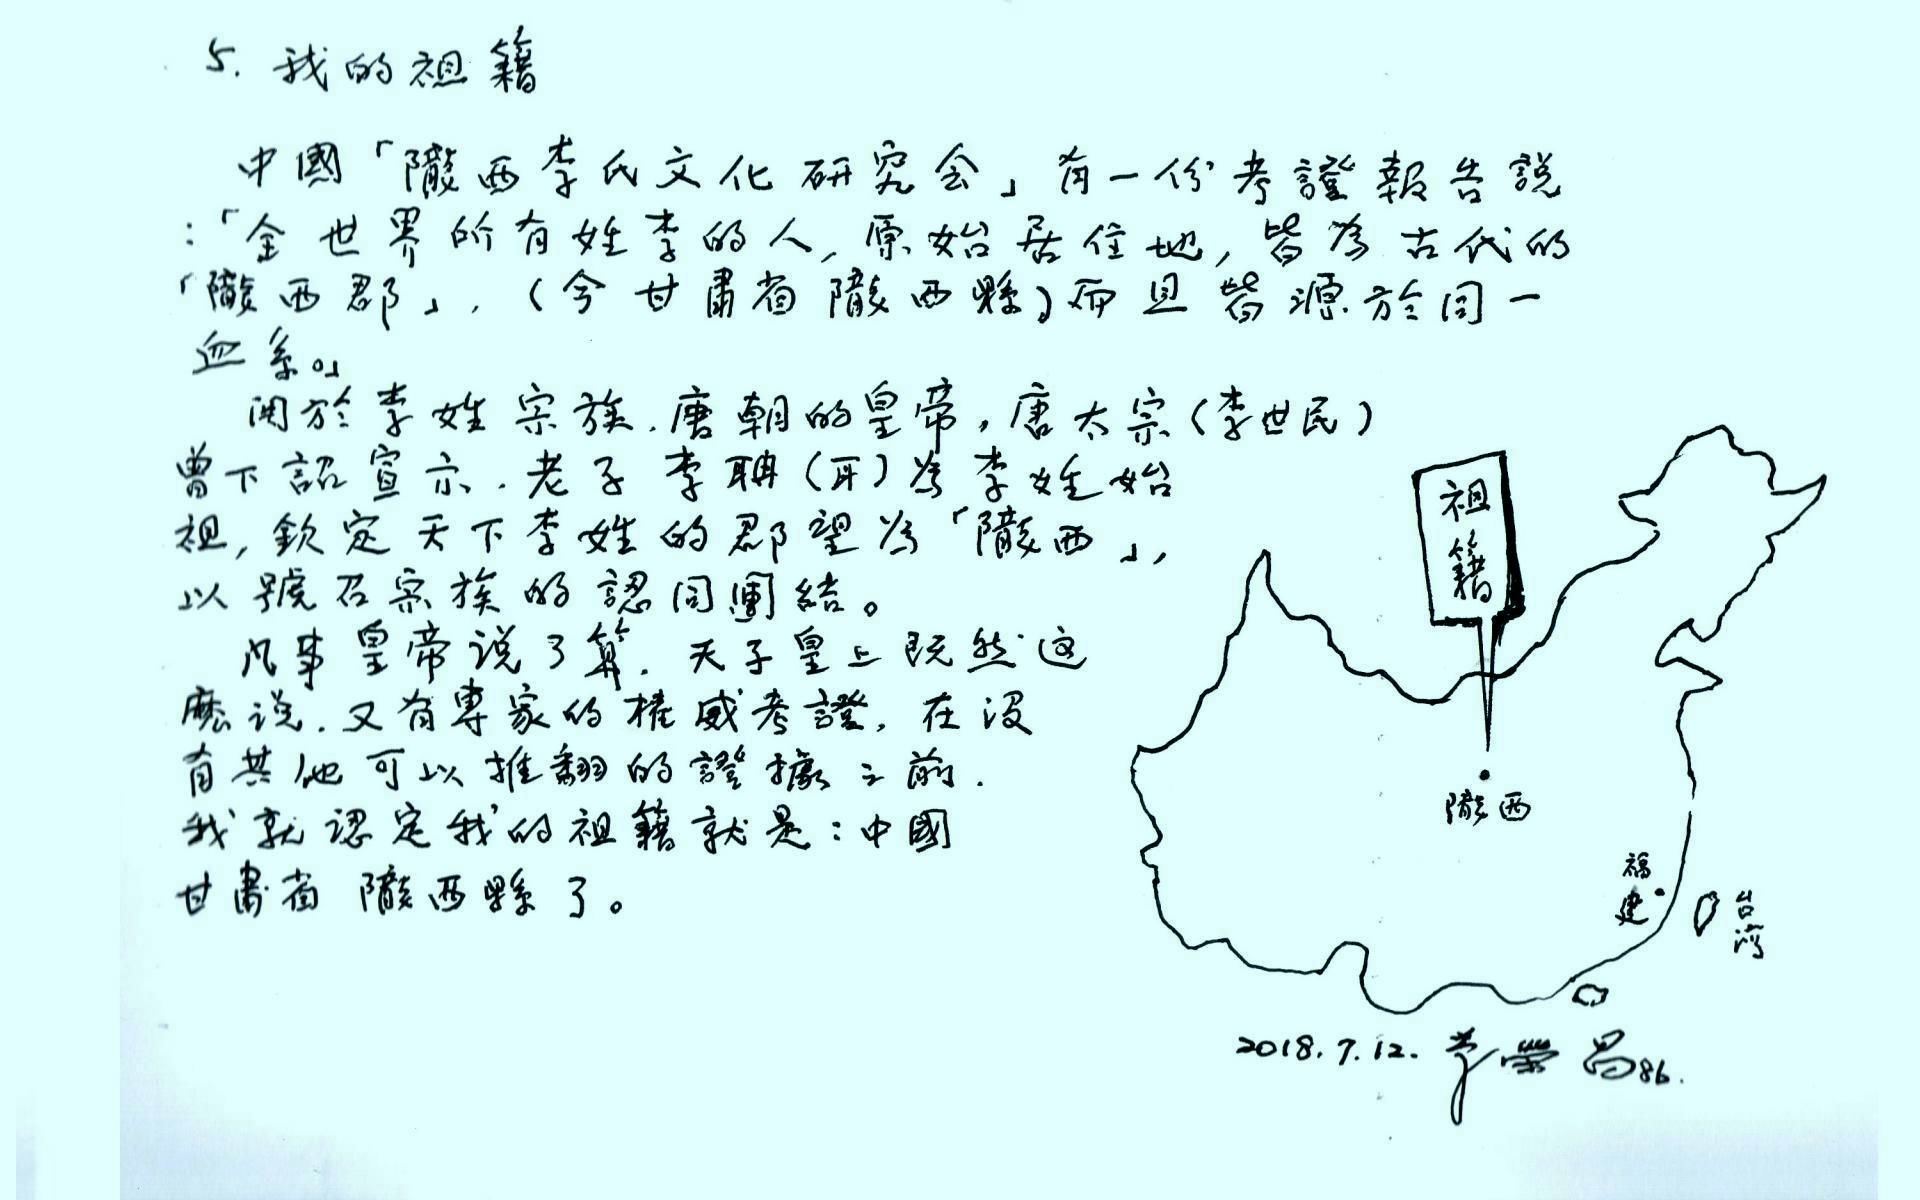 5. 我的祖籍
中國「隴西李氏文化研究会」有一份考證報告說
:「全世界所有姓李的人,原始居住地,皆為古代的
「隴西郡」,(今甘肅省隴西縣)而且皆源於同一
血系。」
関於李姓宗族.唐朝的皇帝,唐太宗(李世民)
曾下詔宣示.老子李聃(耳)為李姓始
祖,欽定天下李姓的郡望為「隴西」,
以號召宗族的認同團結。
凡事皇帝说了算.天子皇上既然这
麽说.又有專家的権威考證,在没
有其他可以推翻的證據之前.
我就認定我的祖籍就是:中國
甘肅省隴西縣了。
祖籍
隴西
福建
台湾
2018.7.12. 李榮昌86.